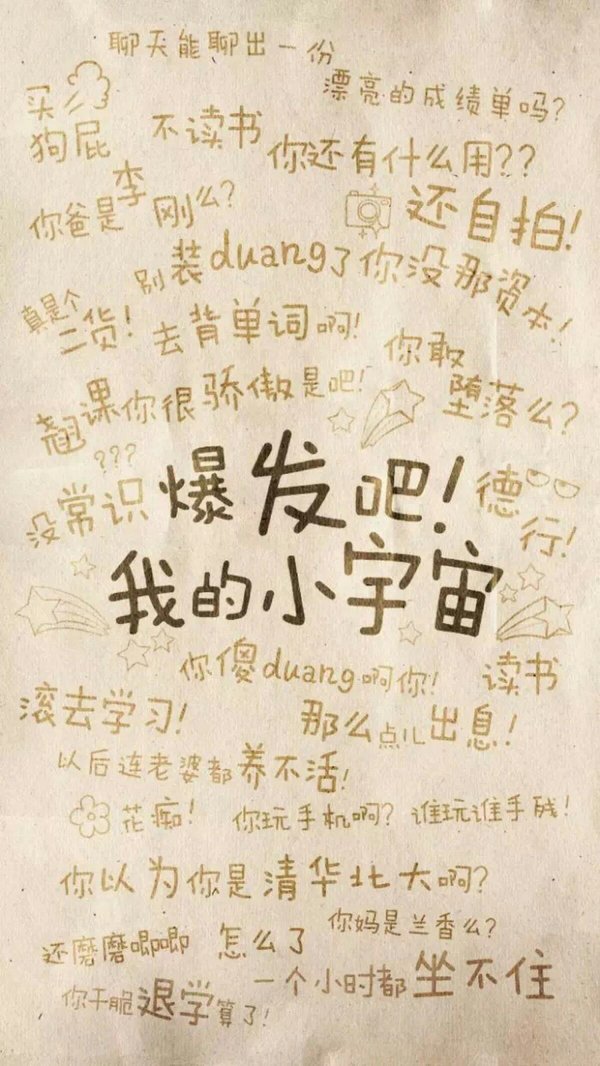 聊天能聊出一份
漂亮的成绩单吗?
买么
狗屁
不读书
你还有什么用??
你爸是李刚么?
还自拍!
别装duang了你没那资本!
真是个
二货!
去背单词啊!
你敢
堕落么?
翘课你很骄傲是吧!
???
没常识
爆发吧!
德
行!
我的小宇宙
你傻duang啊你!
读书
滚去学习!
那么点儿出息!
以后连老婆都养不活!
花痴!
你玩手机啊?谁玩谁手残!
你以为你是清华北大啊?
你妈是兰香么?
还磨磨唧唧
怎么了
一个小时都坐不住
你干脆退学算了!